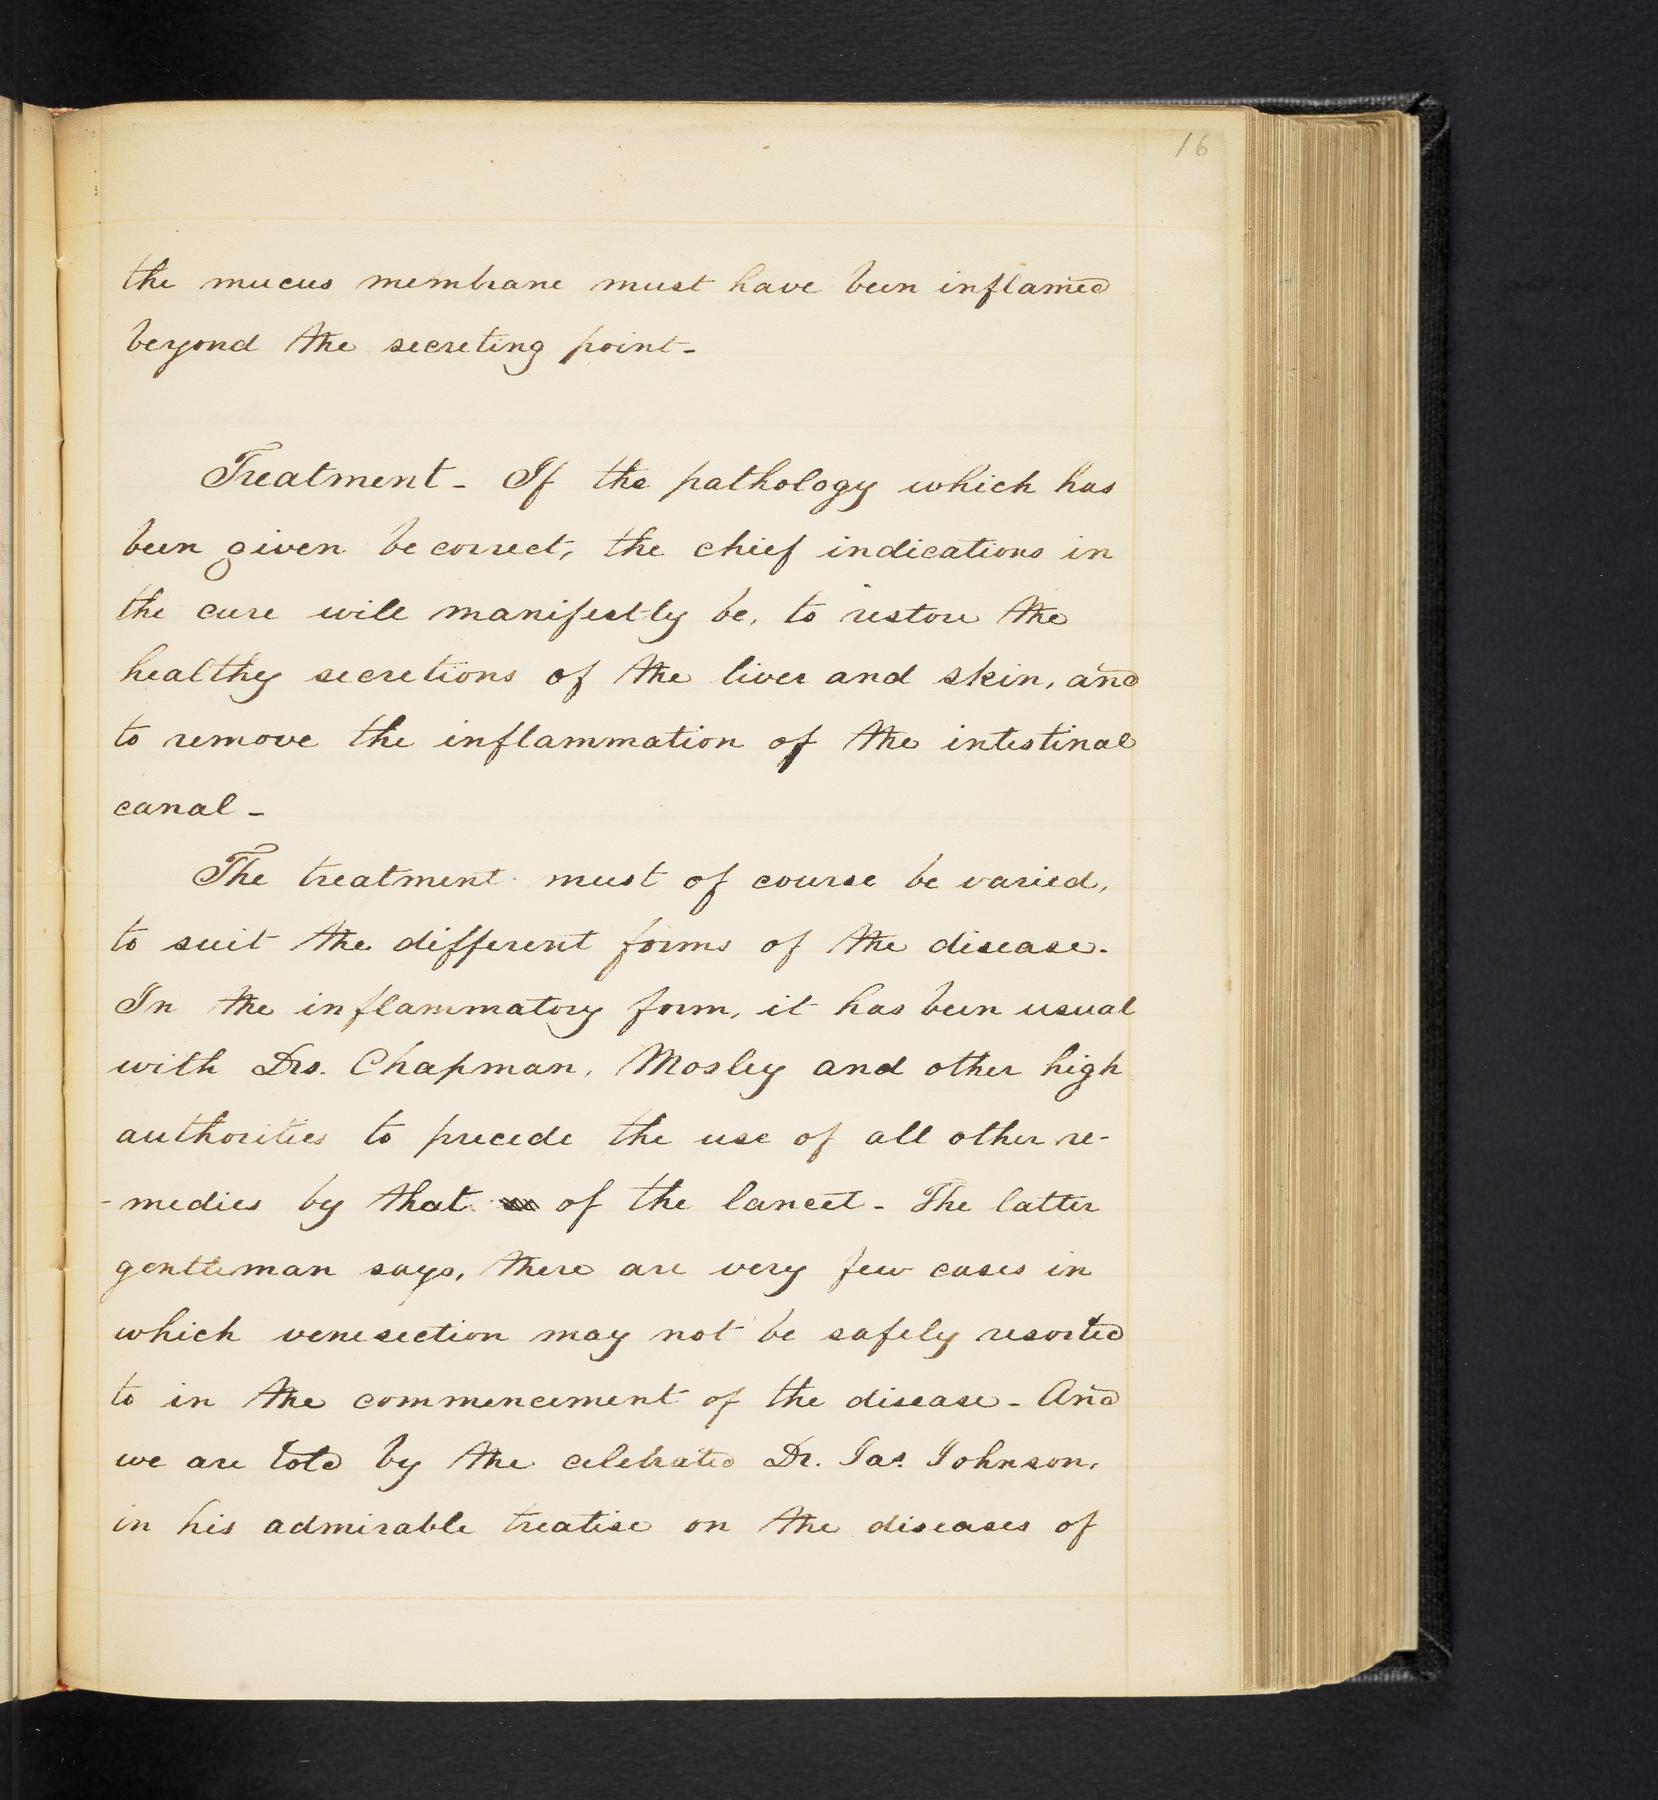 16
the mucus membrane must have been inflamed
beyond the secreting point-
Treatment- If the pathology which has
been given be correct, the chief indications in
the cure will manifestly be, to restore the
healthy secretions of the liver and skin, and
to remove the inflammation of the intestinal
canal-
The treatment must of course be varied,
to suit the different forms of the disease.
In the inflammatory form, it has been usual
with Drs. Chapman, Mosley and other high
authorities to precede the use of all other re-
-medies by that of the lancet- The latter
gentleman says, there are very few cases in
which venesection may not be safely resorted
to in the commencement of the disease- And
we are told by the celebrated Dr. Jas. Johnson,
in his admirable treatise on the diseases of